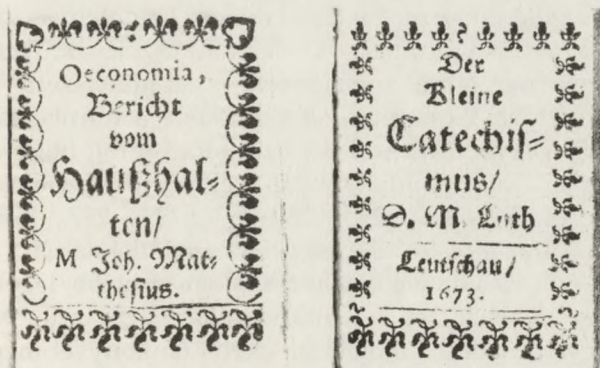 Oeconomia,
Bericht
vom
Haußhal-
ten/
M Joh. Mat-
thesius.
Der
Kleine
Catechis-
mus/
D. M. Luth
Leutschau/
1673.